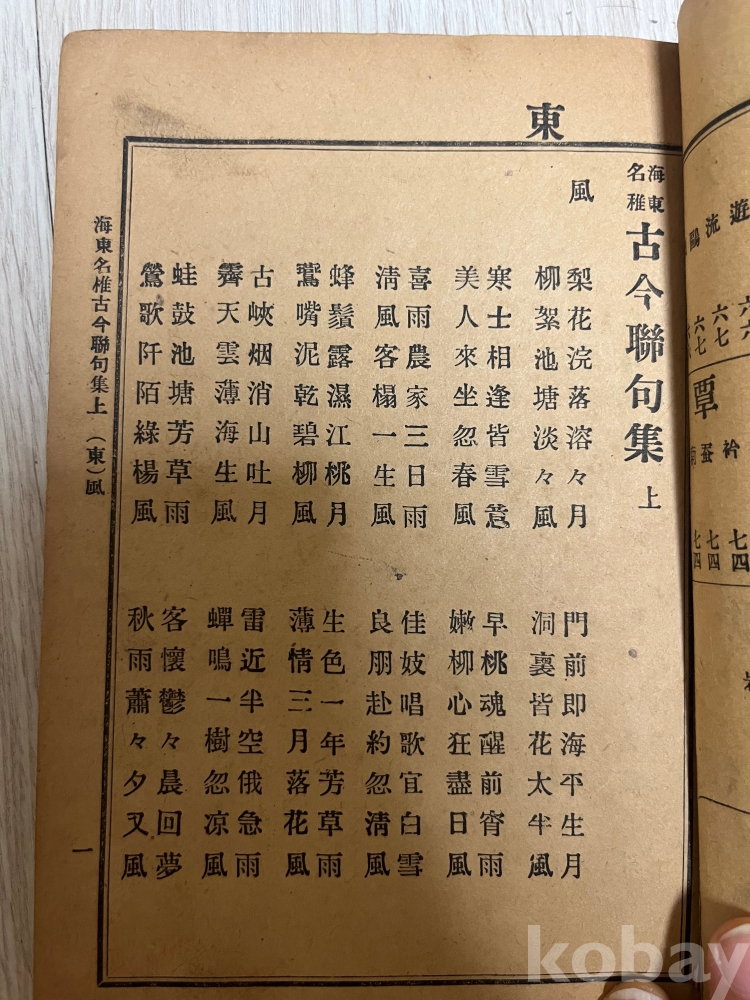 東
海東名稚
古今聯句集 上
風
梨花浣落溶々月
柳絮池塘淡々風
寒士相逢皆雪意
美人來坐忽春風
喜雨農家三日雨
淸風客榻一生風
蜂鬚露濕江桃月
鶯嘴泥乾碧柳風
古峽烟消山吐月
霽天雲薄海生風
蛙鼓池塘芳草雨
鶯歌阡陌綠楊風
門前即海平生月
洞裏皆花太半風
早桃魂醒前宵雨
嫩柳心狂盡日風
佳妓唱歌宜白雪
良朋赴約忽淸風
生色一年芳草雨
薄情三月落花風
雷近半空俄急雨
蟬鳴一樹忽凉風
客懷鬱々晨回夢
秋雨蕭々夕又風
海東名椎古今聯句集上 (東)風
一
遊 六六
流 六七
鷗 六七
覃
衿 七四
蚕 七四
七四
kobay